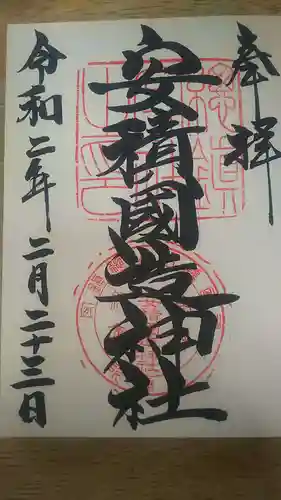 奉祥
安積國造神社
令和二年二月二十三日